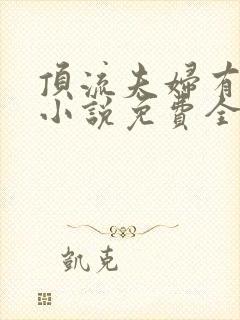 頂流夫婦有
小說免費全
凱克